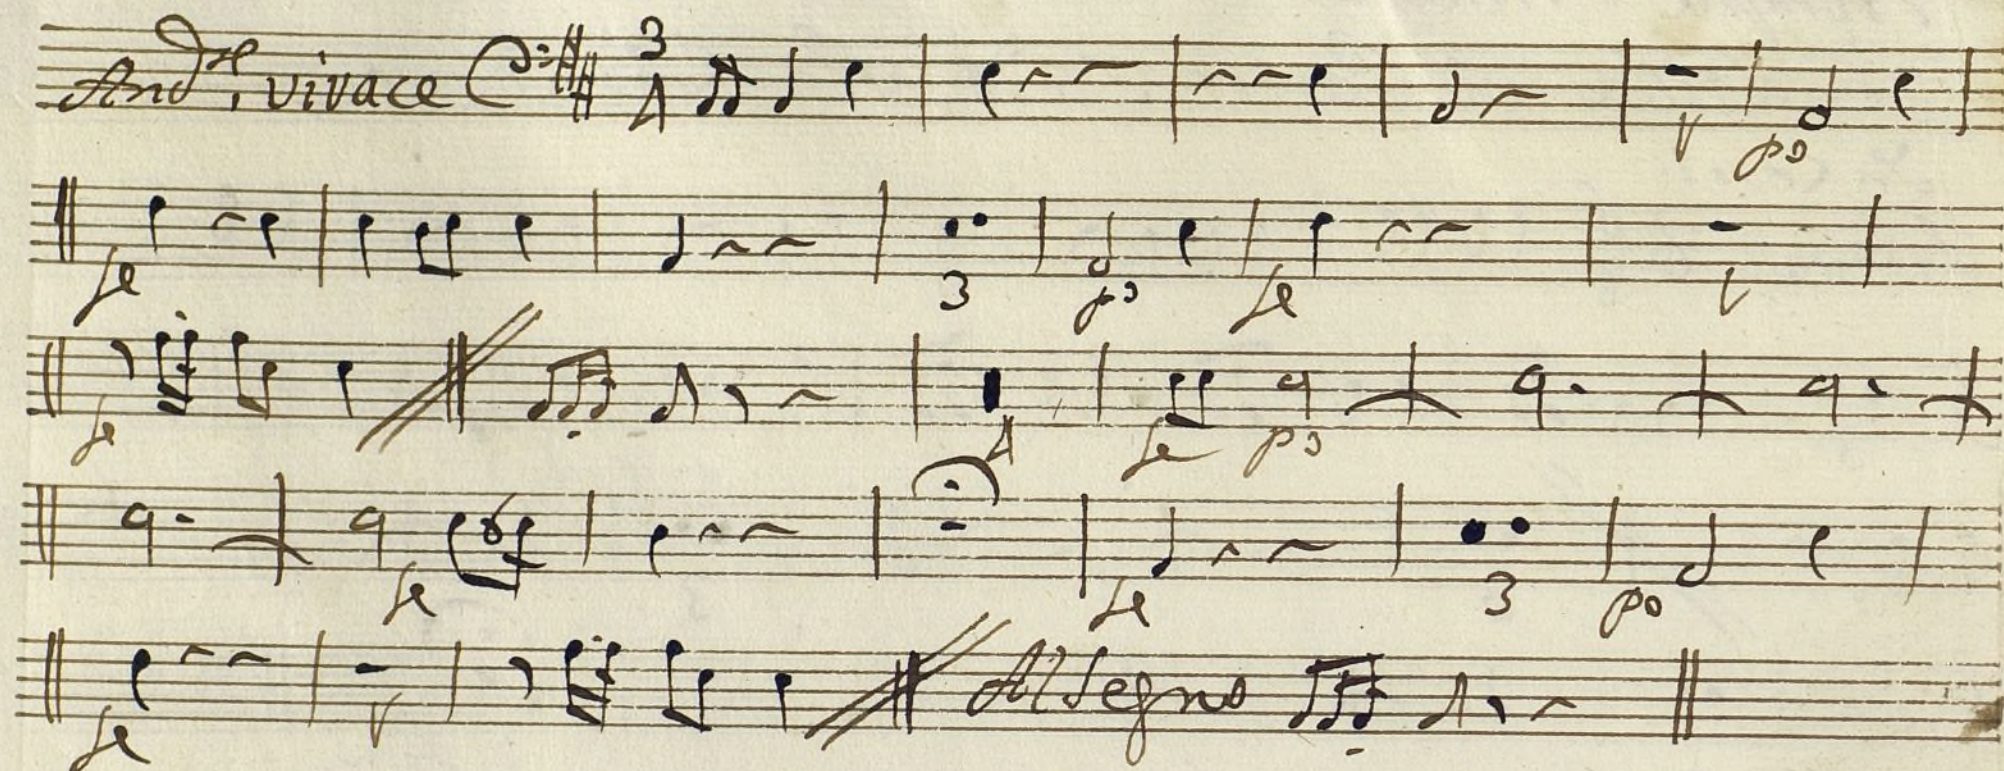 And.te vivace 3 4 po
fe 3 po fe
fe 4 fe po
fe fe 3 po
fe Al Segno